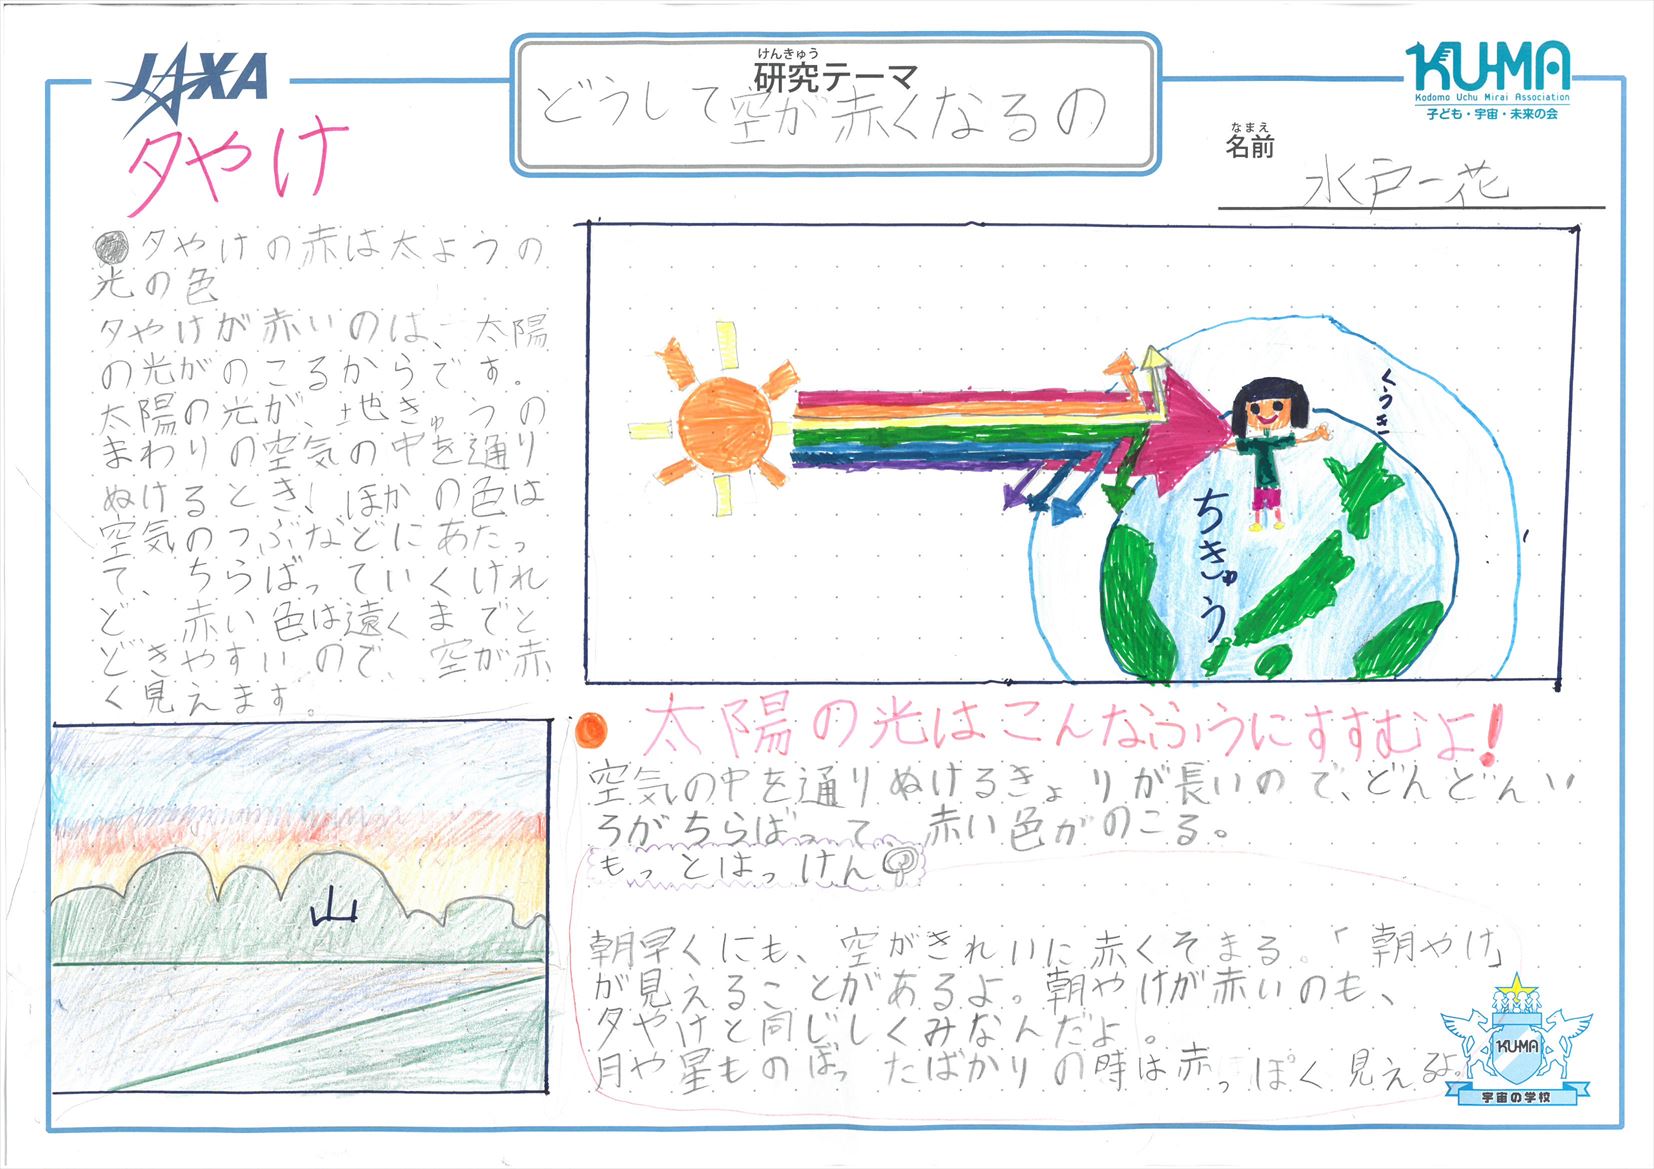 JAXA
けんきゅう
研究テーマ
どうして空が赤くなるの
KU-MA
Kodomo Uchu Mirai Association
子ども・宇宙・未来の会
なまえ
名前
水戸一花
夕やけ
夕やけの赤は太ようの
光の色
夕やけが赤いのは、太陽
の光がのこるからです。
太陽の光が、地きゅうの
まわりの空気の中を通り
ぬけるとき、ほかの色は
空気のつぶなどにあたっ
て、ちらばっていくけれ
ど、赤い色は遠くまでと
どきやすいので、空が赤
く見えます。
くうき
ちきゅう
山
太陽の光はこんなふうにすすむよ!
空気の中を通りぬけるきょりが長いので、どんどんい
ろがちらばって赤い色がのこる。
もっとはっけん
朝早くにも、空がきれいに赤くそまる。「朝やけ」
が見えることがあるよ。朝やけが赤いのも、
夕やけと同じしくみなんだよ。
月や星ものぼったばかりの時は赤っぽく見えるよ。
KU-MA
宇宙の学校